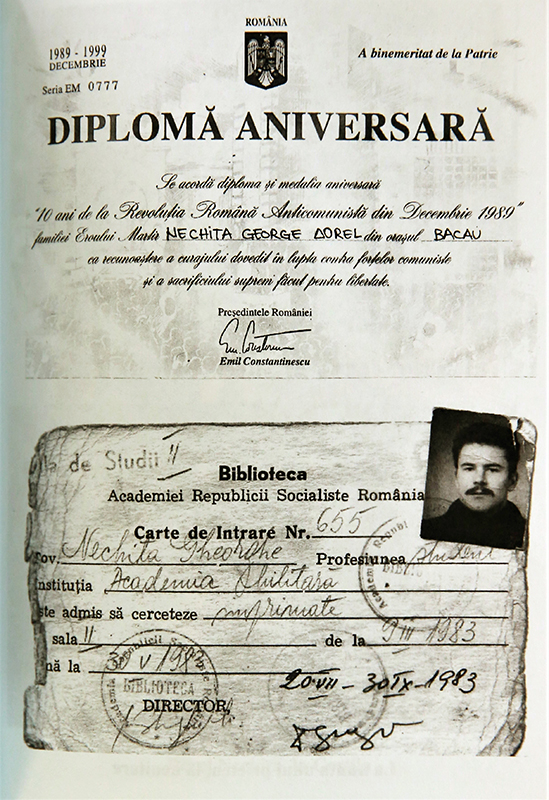 ROMÂNIA
1989 - 1999
DECEMBRIE
A binemeritat de la Patrie
Seria EM 0777
DIPLOMĂ ANIVERSARĂ
Se acordă diploma și medalia aniversară
"10 ani de la Revoluția Română Anticomunistă din Decembrie 1989"
familiei Eroului Martir NECHITA GEORGE DOREL din orașul BACĂU
ca recunoaștere a curajului dovedit în lupta contra forțelor comuniste
și a sacrificiului suprem făcut pentru libertate.
Președintele României
Emil Constantinescu
de Studii II
Biblioteca
Academiei Republicii Socialiste România
Carte de Intrare Nr. 655
ov. Nechita Gheorghe Profesiunea student
nstituția Academia Militara
ste admis să cerceteze imprimate
sala II de la 9 III 1983
nă la V 1983
BIBLIOTECA
20 VII - 30 IX - 1983
DIRECTOR